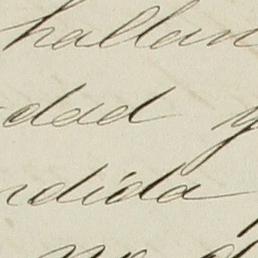 hallan
dad y
ndida